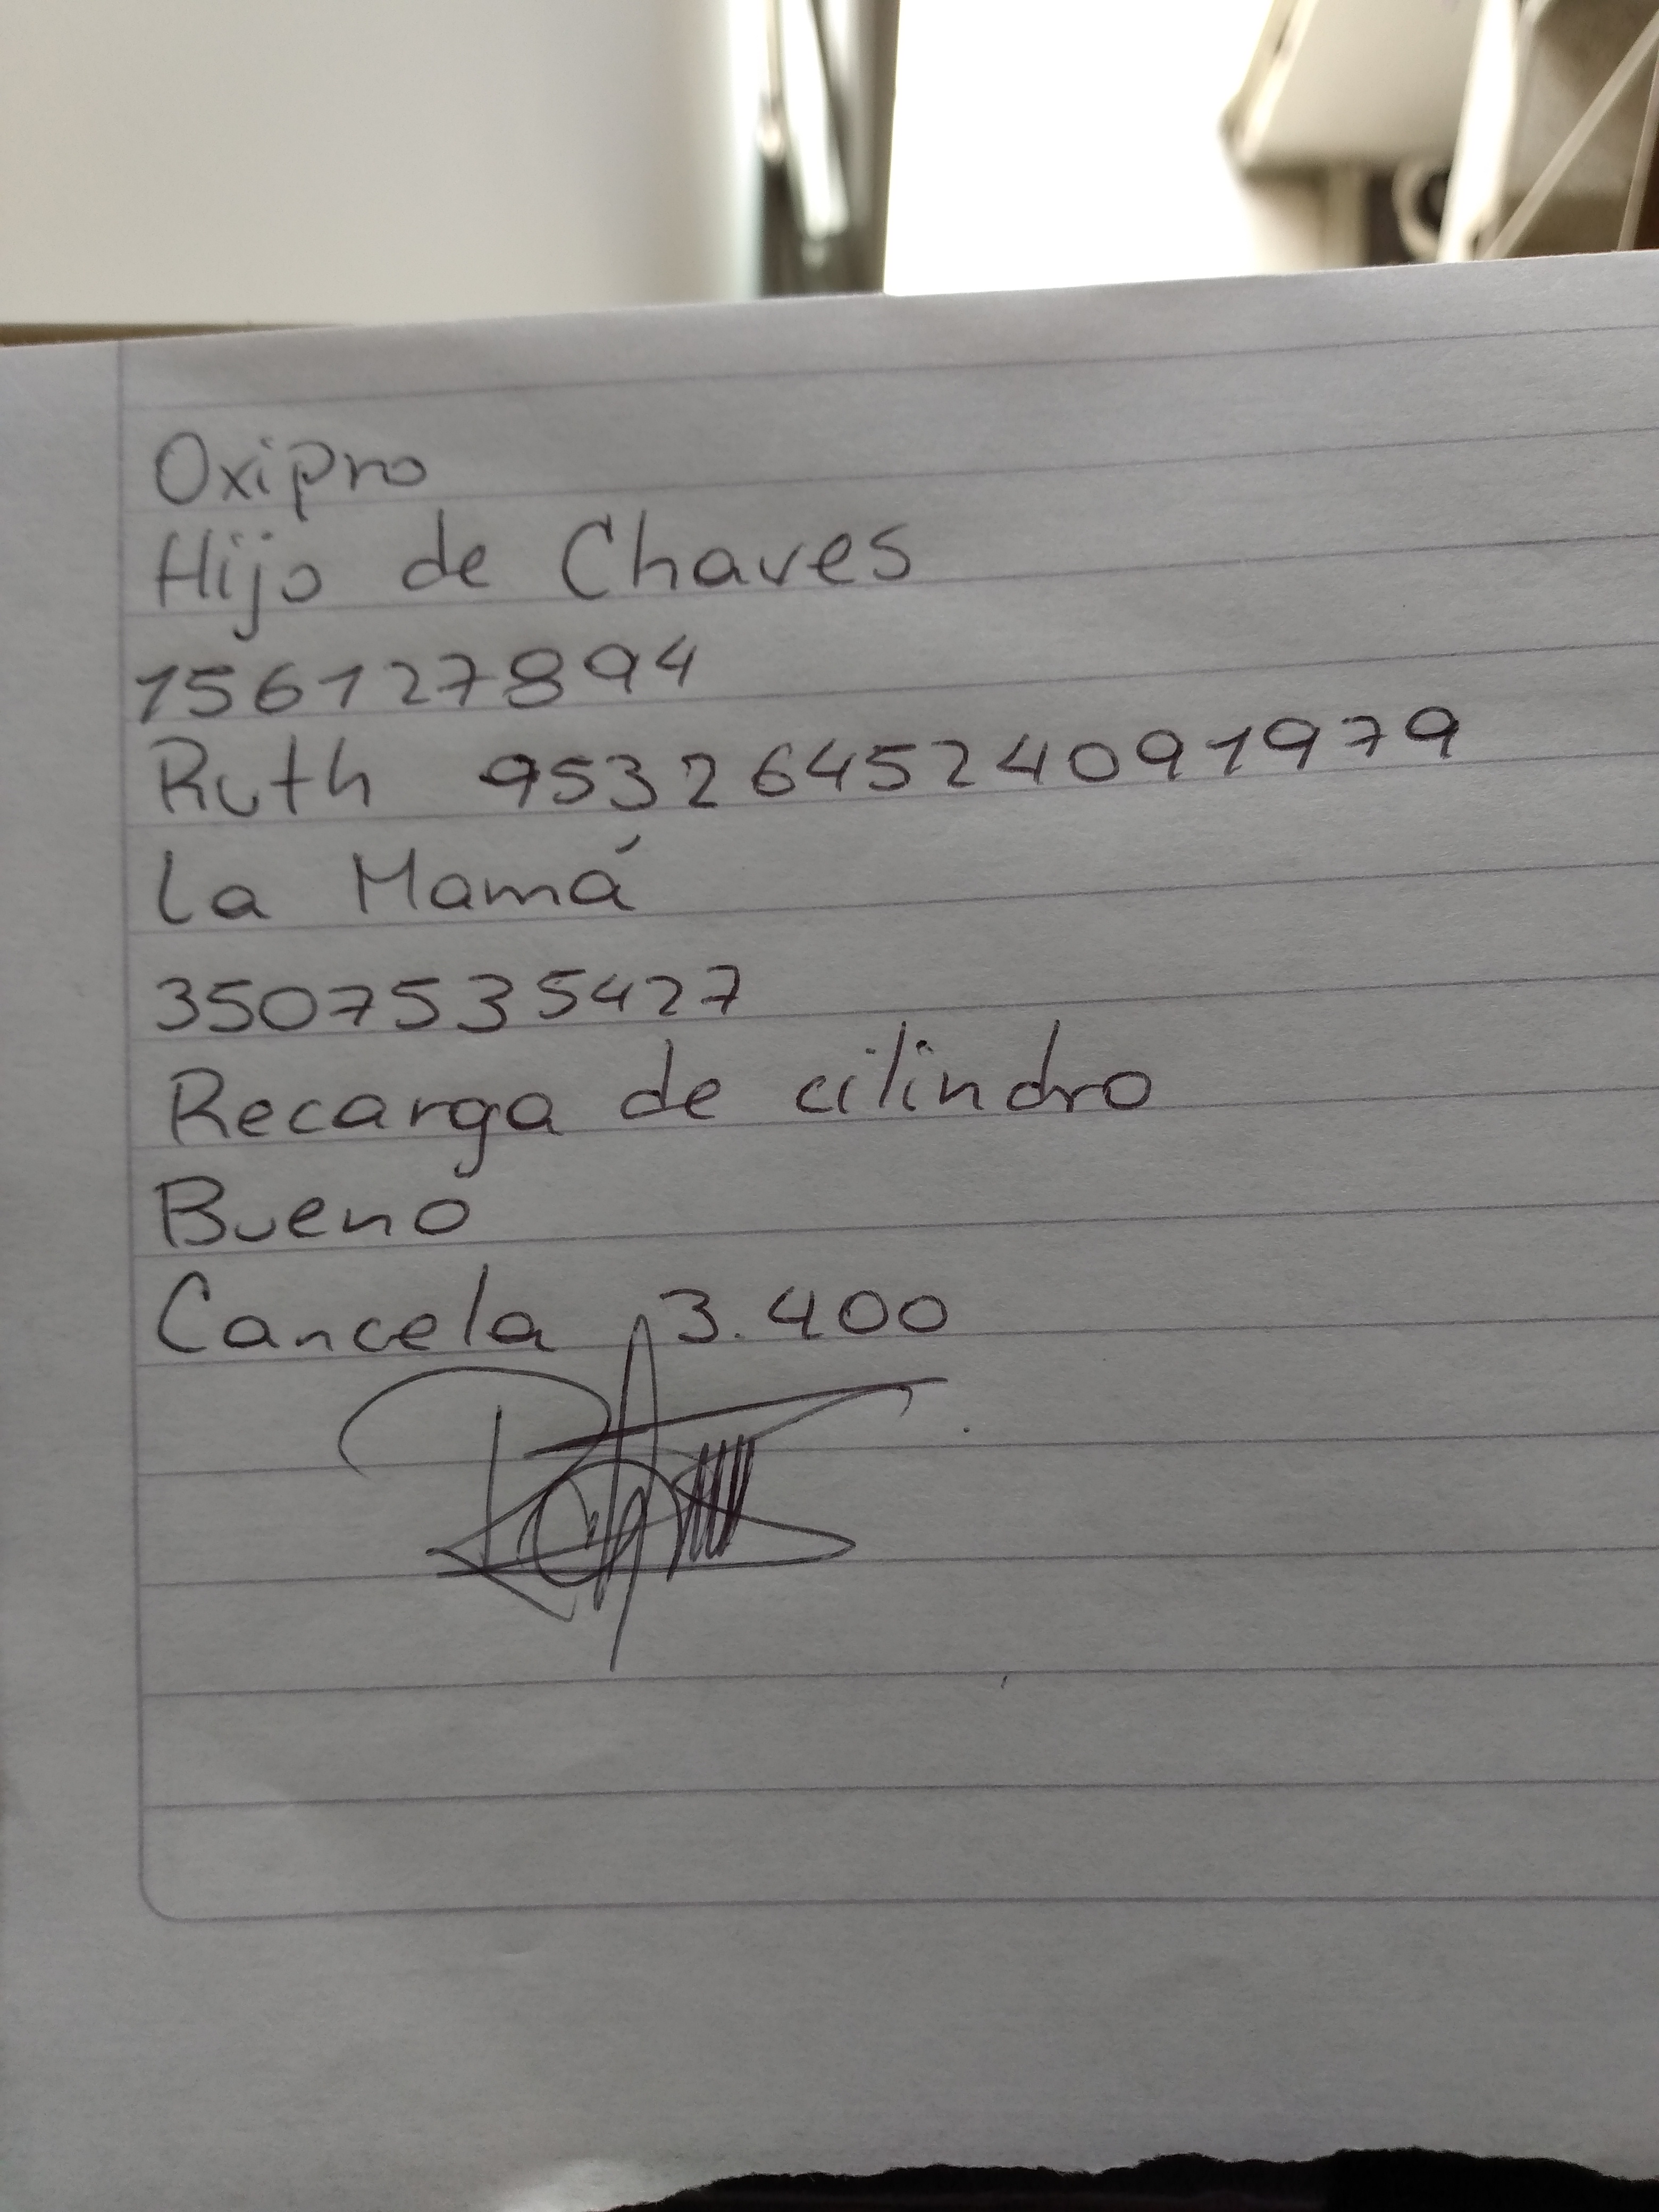 Oxipro
Hijo de Chaves
156127894
Ruth 953264524091979
La Mamá
3507535427
Recarga de cilindro
Bueno
Cancela 3.400